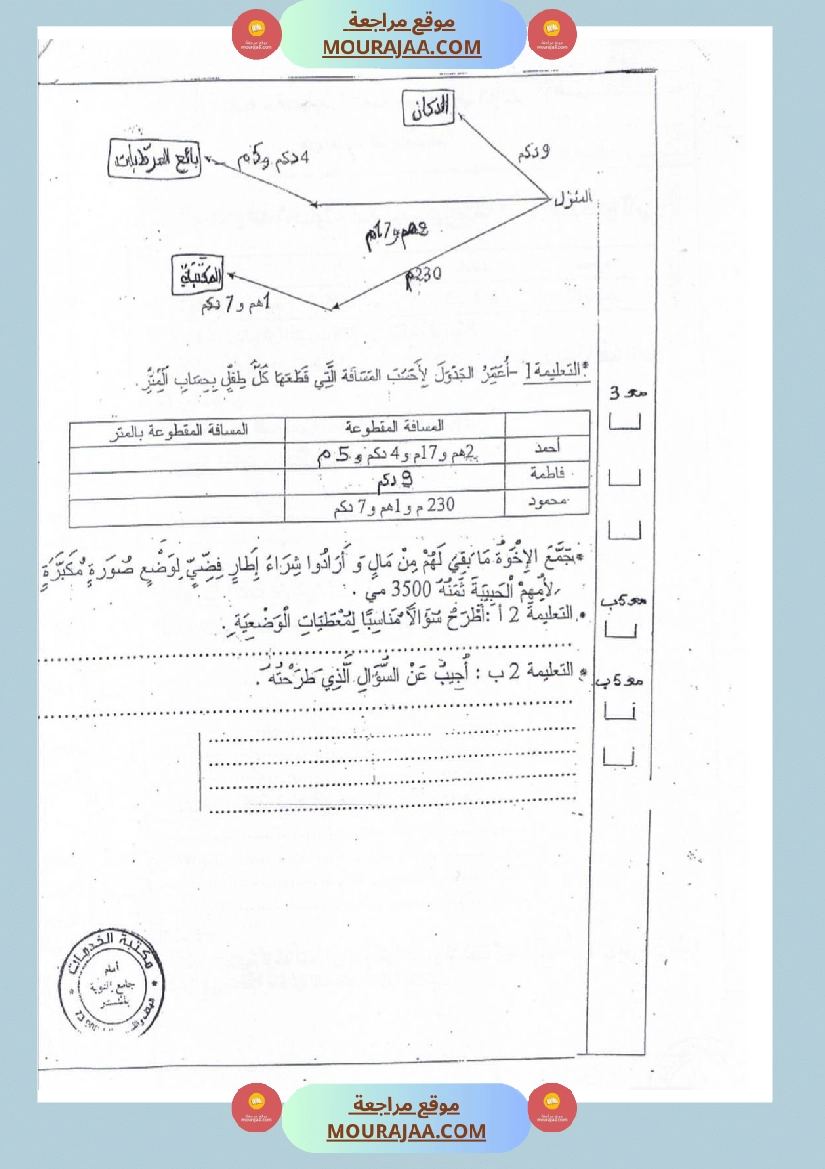 موقع مراجعة
MOURAJAA.COM
الدكان
بائع المرطبات
4 دكم و 5 م
9 دكم
المنزل
2هم و17م
المكتبة
230م
1هم و 7 دكم
*التعليمة 1 -أُعَمِّرُ الجَدْوَلَ لِأَحْسُبَ المَسَافَة الَّتِي قَطَعَهَا كُلُّ طِفْلٍ بِحِسَابِ الْمِتْرِ.
مع 3
المسافة المقطوعة
المسافة المقطوعة بالمتر
أحمد
2هم و17م و4 دكم و 5 م
فاطمة
9 دكم
محمود
230 م و1هم و7 دكم
*تجَمَّعَ الإِخْوَةُ مَا بَقِيَ لَهُمْ مِنْ مَالٍ وَ أَرَادُوا شِرَاءَ إِطَارٍ فِضِّيٍّ لِوَضْعِ صُورَةٍ مُكَبَّرَةٍ
لأُمِّهِمْ الْحَبِيبَةَ ثَمَنُهُ 3500 مي .
مع 5ب
• التعليمة 2 أ :أَطْرَحُ سُؤَالاً مُنَاسِبًا لِمُعْطَيَاتِ الْوَضْعِيَةِ .
• التعليمة 2 ب : أُجِيبُ عَنْ السُّؤَالِ الَّذِي طَرَحْتُهُ .
مع 5ب
مكتبة الخدمات
أمام
جامع التوبة
موقع مراجعة
MOURAJAA.COM